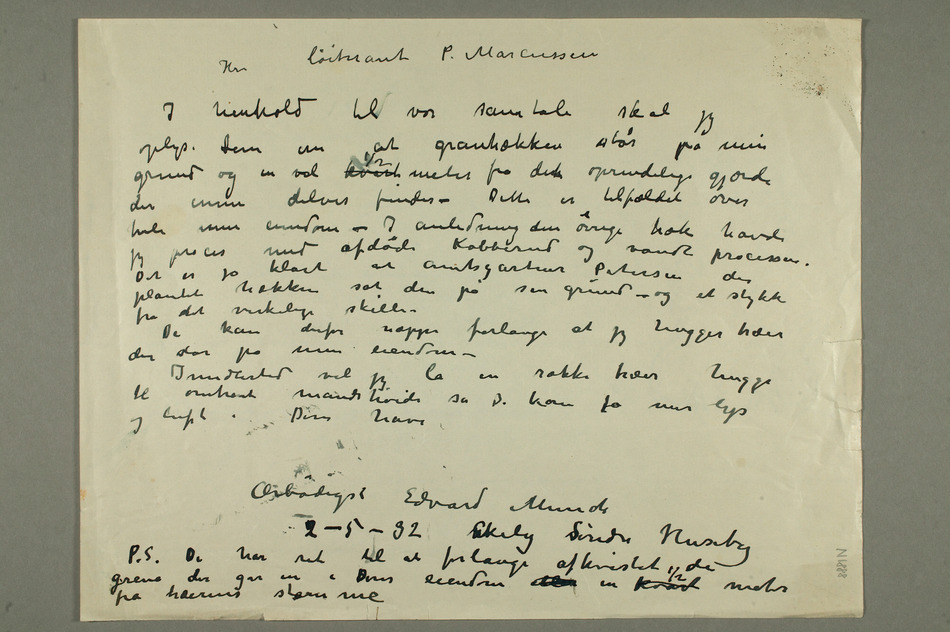 Hr. Löitnant P. Marcussen
I henhold til vor samtale skal jeg
oplyse Dem om at granhækken står på min
grund og en vel kvart 1/2 meter fra det oprindelige gjærde
der ennu delvis findes – Dette er tilfældet over
hele min eiendom – I anledning den övrige hæk havde
jeg proces med afdöde Kobberud og vandt processen.
Det er jo klart at amtsgartner Petersen der
plantet hækken sat den på sin grund – og et stykke
fra det virkelige skille –
De kan derfor neppe forlange at jeg hugger trær
der står på min eiendom –
Imidlertid vil jeg la en række trær hugge
til omtrent mandshöide så De kan få mer lys
og luft i Deres have
Ærbödigst Edvard Munch
2–5–32 Skely Söndre Huseby
P.S. De har ret til at forlange afkvistet de
grene der går in i Deres eiendom en kvart 1/2 meter
fra træernes stamme
N 1888